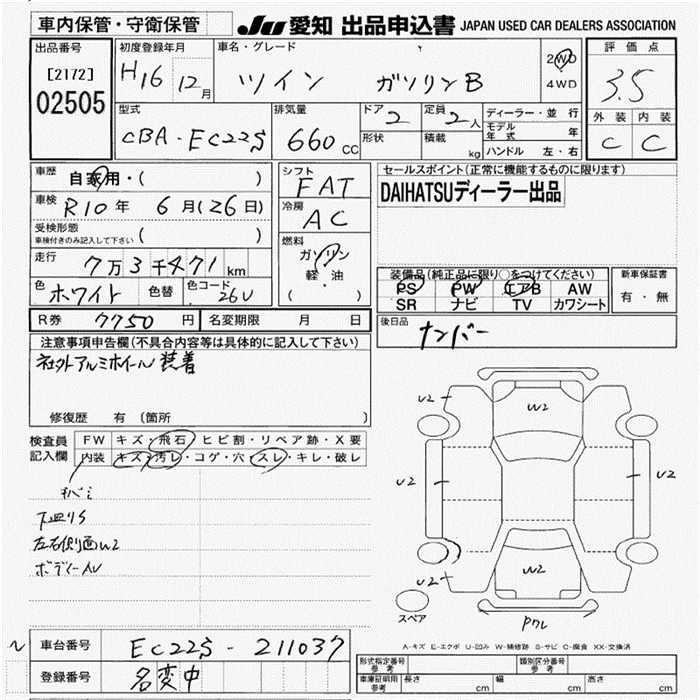 車内保管・守衛保管
JU 愛知 出品申込書 JAPAN USED CAR DEALERS ASSOCIATION
出品番号
[2172]
02505
初度登録年月
H16 12月
車名・グレード
ツイン ガソリンB
2WD
4WD
評価点
3.5
外装 内装
C C
型式
CBA-EC22S
排気量
660 CC
ドア 2
形状
定員 2人
積載 kg
ディーラー・並行
モデル年式 年
ハンドル 左・右
車歴 自家用・( )
車検 R10年 6月(26日)
受検形態
車検付きのみ記入して下さい ( )
走行 7万3千471km
色 ホワイト 色替 色コード 26U
シフト FAT
冷房 AC
燃料
ガソリン
軽・油
( ・ )
セールスポイント(正常に機能するものに限ります)
DAIHATSUディーラー出品
装備品(純正品に限り○をつけてください)
PS PW エアB AW
SR ナビ TV カワシート
新車保証書
有・無
R券 7750円 名変期限 月 日
後日品 ナンバー
注意事項申告欄(不具合内容等は具体的に記入して下さい)
社外アルミホイール装着
修復歴 有(箇所 )
検査員
記入欄
FW キズ・飛石・ヒビ割・リペア跡・X要
内装 キズ・汚レ・コゲ・穴・スレ・キレ・破レ
下廻りS
左右側面W2
ボディーAU
U2
W2
U2
U2
U2
W2
スペア
Pクレ
A-キズ E-エクボ U-凹み W-補修跡 S-サビ C-腐食 XX-交換済
車台番号 EC22S-211037
登録番号 名変中
形式指定番号
参考
類別区分番号
参考
車庫証明用
参考
長さ cm 幅 cm 高さ cm